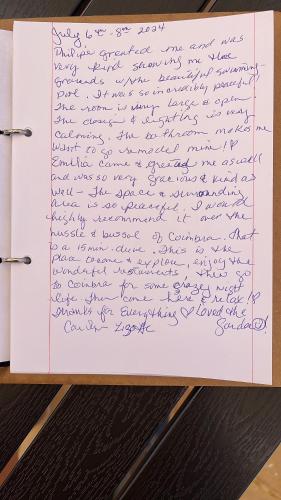 July 6th - 8th 2024
Philipe greeted me and was
very kind showing me the
grounds w/the beautiful swimming
pool. It was so incredibly peaceful!!
The room is very large & open
The design & lighting is very
calming. The bathroom makes me
want to go remodel mine!!♡
Emilia came & greeted me as well
and was so very gracious & kind as
well - The space & surrounding
area is so peaceful. I would
highly recommend it over the
hussle & bussel of Coimbra. That
is a 15 min. drive. This is the
place to come & explore, enjoy the
wonderful restaurants, then go
to Coimbra for some crazy night
life. Then come here & relax!♡
Thanks for Everything ♡ Loved the
Garden ☺!